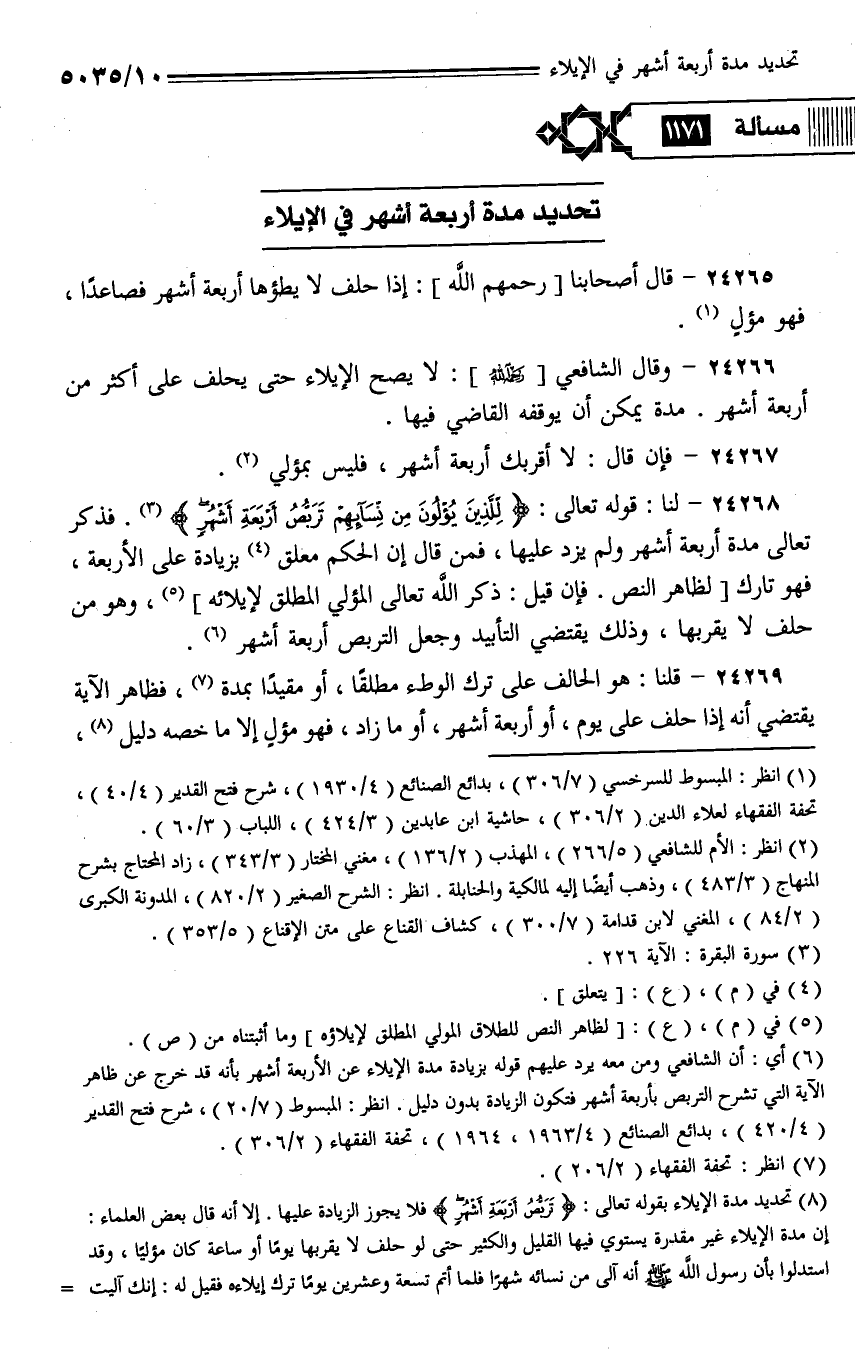 تحديد مدة أربعة أشهر في الإيلاء ٥٠٣٥/١٠
مسألة ١١٧١
تحديد مدة أربعة أشهر في الإيلاء
٢٤٢٦٥ - قال أصحابنا [ رحمهم اللَّه ] : إذا حلف لا يطؤها أربعة أشهر فصاعدًا ،
فهو مؤلٍ (١) .
٢٤٢٦٦ - وقال الشافعي [ ] : لا يصح الإيلاء حتى يحلف على أكثر من
أربعة أشهر . مدة يمكن أن يوقفه القاضي فيها .
٢٤٢٦٧ - فإن قال : لا أقربك أربعة أشهر ، فليس بمؤلي (٢) .
٢٤٢٦٨ - لنا : قوله تعالى : ﴿ لِّلَّذِينَ يُؤْلُونَ مِن نِّسَآئِهِمْ تَرَبُّصُ أَرْبَعَةِ أَشْهُرٍۖ ﴾ (٣) . فذكر
تعالى مدة أربعة أشهر ولم يزد عليها ، فمن قال إن الحكم معلق (٤) بزيادة على الأربعة ،
فهو تارك [ لظاهر النص . فإن قيل : ذكر اللَّه تعالى المؤلي المطلق لإيلائه ] (٥) ، وهو من
حلف لا يقربها ، وذلك يقتضي التأبيد وجعل التربص أربعة أشهر (٦) .
٢٤٢٦٩ - قلنا : هو الحالف على ترك الوطء مطلقًا ، أو مقيدًا بمدة (٧) ، فظاهر الآية
يقتضي أنه إذا حلف على يوم ، أو أربعة أشهر ، أو ما زاد ، فهو مؤلٍ إلا ما خصه دليل (٨) ،
(١) انظر : المبسوط للسرخسي ( ٣٠٦/٧ ) ، بدائع الصنائع ( ١٩٣٠/٤ ) ، شرح فتح القدير ( ٤٠/٤ ) ،
تحفة الفقهاء لعلاء الدين ( ٣٠٦/٢ ) ، حاشية ابن عابدين ( ٤٢٤/٣ ) ، اللباب ( ٦٠/٣ ) .
(٢) انظر : الأم للشافعي ( ٢٦٦/٥ ) ، المهذب ( ١٣٦/٢ ) ، مغني المختار ( ٣٤٣/٣ ) ، زاد المحتاج بشرح
المنهاج ( ٤٨٣/٣ ) ، وذهب أيضًا إليه لمالكية والحنابلة . انظر : الشرح الصغير ( ٨٢٠/٢ ) ، المدونة الكبرى
( ٨٤/٢ ) ، المغني لابن قدامة ( ٣٠٠/٧ ) ، كشاف القناع على متن الإقناع ( ٣٥٣/٥ ) .
(٣) سورة البقرة : الآية ٢٢٦ .
(٤) في ( م ) ، ( ع ) : [ يتعلق ] .
(٥) في ( م ) ، ( ع ) : [ لظاهر النص للطلاق المولي المطلق لإيلاؤه ] وما أثبتناه من ( ص ) .
(٦) أي : أن الشافعي ومن معه يرد عليهم قوله بزيادة مدة الإيلاء عن الأربعة أشهر بأنه قد خرج عن ظاهر
الآية التي تشرح التربص بأربعة أشهر فتكون الزيادة بدون دليل . انظر : المبسوط ( ٢٠/٧ ) ، شرح فتح القدير
( ٤٢٠/٤ ) ، بدائع الصنائع ( ١٩٦٣/٤ ، ١٩٦٤ ) ، تحفة الفقهاء ( ٣٠٦/٢ ) .
(٧) انظر : تحفة الفقهاء ( ٢٠٦/٢ ) .
(٨) تحديد مدة الإيلاء بقوله تعالى : ﴿ تَرَبُّصُ أَرْبَعَةِ أَشْهُرٍۖ ﴾ فلا يجوز الزيادة عليها . إلا أنه قال بعض العلماء :
إن مدة الإيلاء غير مقدرة يستوي فيها القليل والكثير حتى لو حلف لا يقربها يومًا أو ساعة كان مؤليًا ، وقد
استدلوا بأن رسول اللَّه ﷺ أنه آلى من نسائه شهرًا فلما أتم تسعة وعشرين يومًا ترك إيلاءه فقيل له : إنك آليت =